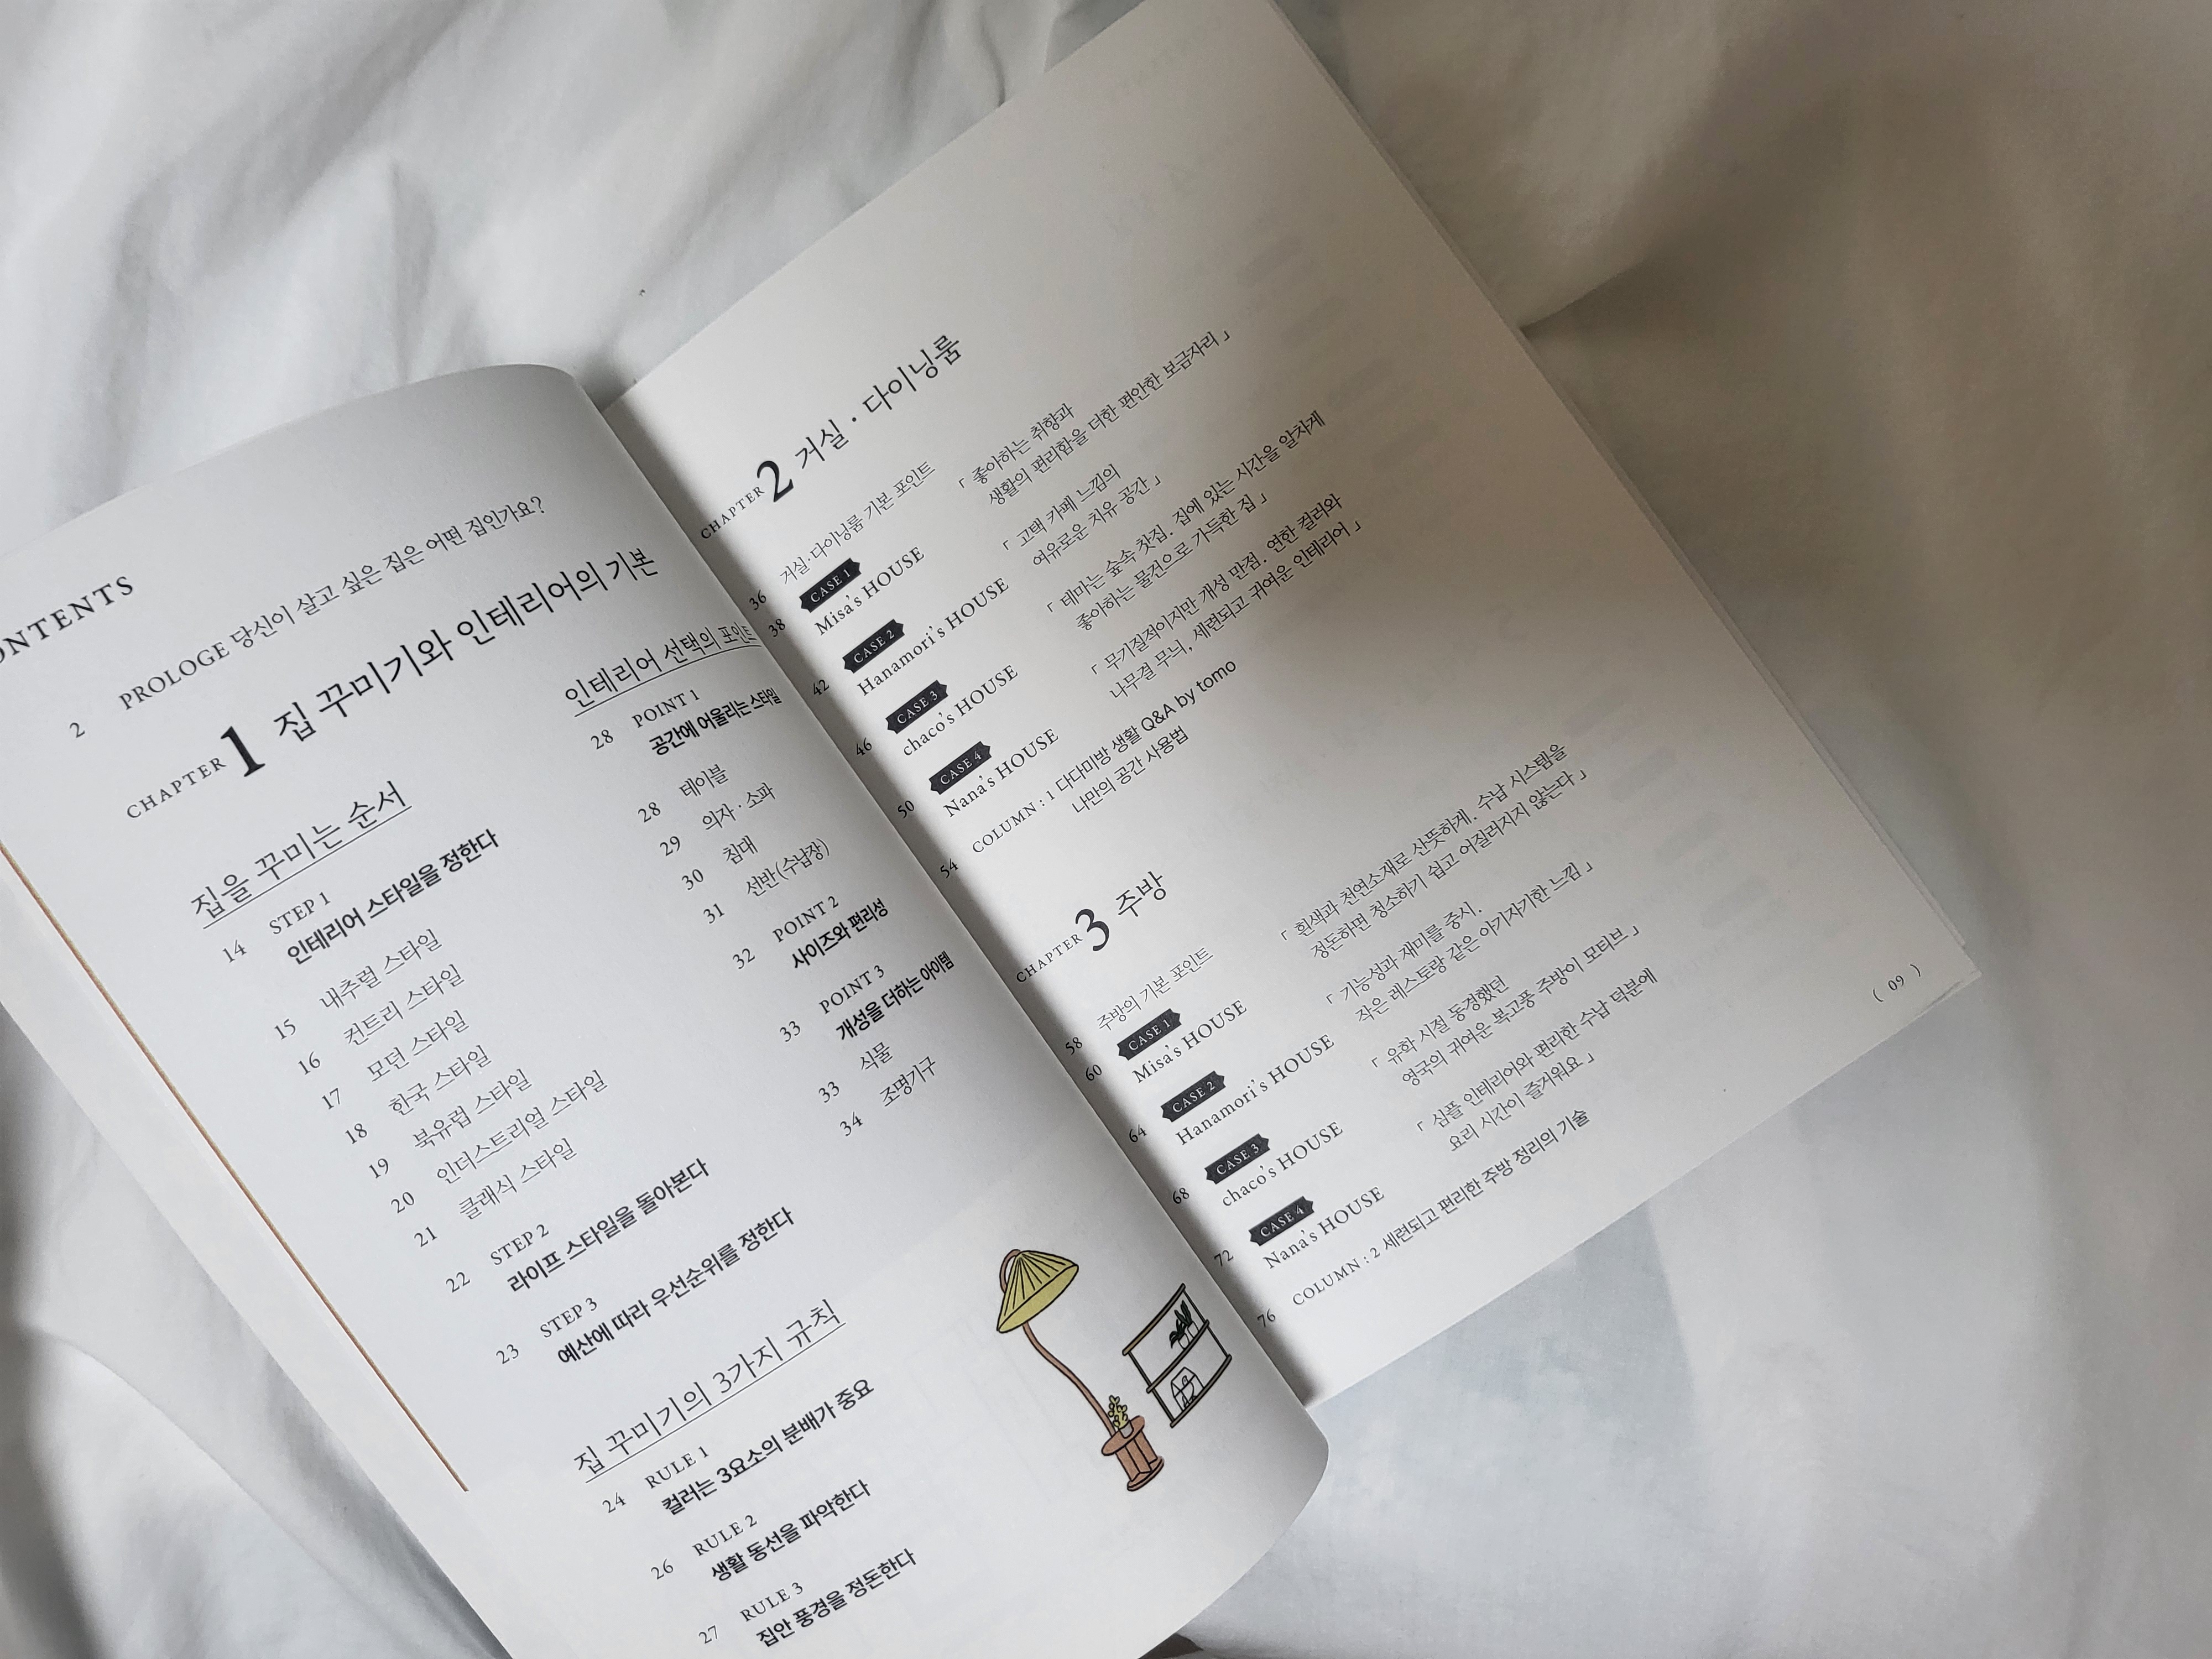 ONTENTS
2 PROLOGE 당신이 살고 싶은 집은 어떤 집인가요?
CHAPTER 1 집 꾸미기와 인테리어의 기본
집을 꾸미는 순서
14 STEP 1
인테리어 스타일을 정한다
15 내추럴 스타일
16 컨트리 스타일
17 모던 스타일
18 한국 스타일
19 북유럽 스타일
20 인더스트리얼 스타일
21 클래식 스타일
22 STEP 2
라이프 스타일을 돌아본다
23 STEP 3
예산에 따라 우선순위를 정한다
집 꾸미기의 3가지 규칙
24 RULE 1
컬러는 3요소의 분배가 중요
26 RULE 2
생활 동선을 파악한다
27 RULE 3
집안 풍경을 정돈한다
인테리어 선택의 포인트
28 POINT 1
공간에 어울리는 스타일
28 테이블
29 의자 · 소파
30 침대
31 선반(수납장)
32 POINT 2
사이즈와 편리성
33 POINT 3
개성을 더하는 아이템
33 식물
34 조명기구
CHAPTER 2 거실 · 다이닝룸
36 거실·다이닝룸 기본 포인트
38 CASE 1
Misa's HOUSE
「 좋아하는 취향과
생활의 편리함을 더한 편안한 보금자리 」
42 CASE 2
Hanamori's HOUSE
「 고택 카페 느낌의
여유로운 치유 공간 」
46 CASE 3
chaco's HOUSE
「 테마는 숲속 찻집. 집에 있는 시간을 알차게
좋아하는 물건으로 가득한 집 」
50 CASE 4
Nana's HOUSE
「 무기질적이지만 개성 만점. 연한 컬러와
나무결 무늬, 세련되고 귀여운 인테리어 」
54 COLUMN : 1 다다미방 생활 Q&A by tomo
나만의 공간 사용법
CHAPTER 3 주방
58 주방의 기본 포인트
60 CASE 1
Misa's HOUSE
「 흰색과 천연소재로 산뜻하게. 수납 시스템을
정도하면 청소하기 쉽고 어질러지지 않는다 」
64 CASE 2
Hanamori's HOUSE
「 기능성과 재미를 중시.
작은 레스토랑 같은 아기자기한 느낌 」
68 CASE 3
chaco's HOUSE
「 유학 시절 동경했던
영국의 귀여운 복고풍 주방이 모티브 」
72 CASE 4
Nana's HOUSE
「 심플 인테리어와 편리한 수납 덕분에
요리 시간이 즐거워요 」
76 COLUMN : 2 세련되고 편리한 주방 정리의 기술
( 09 )